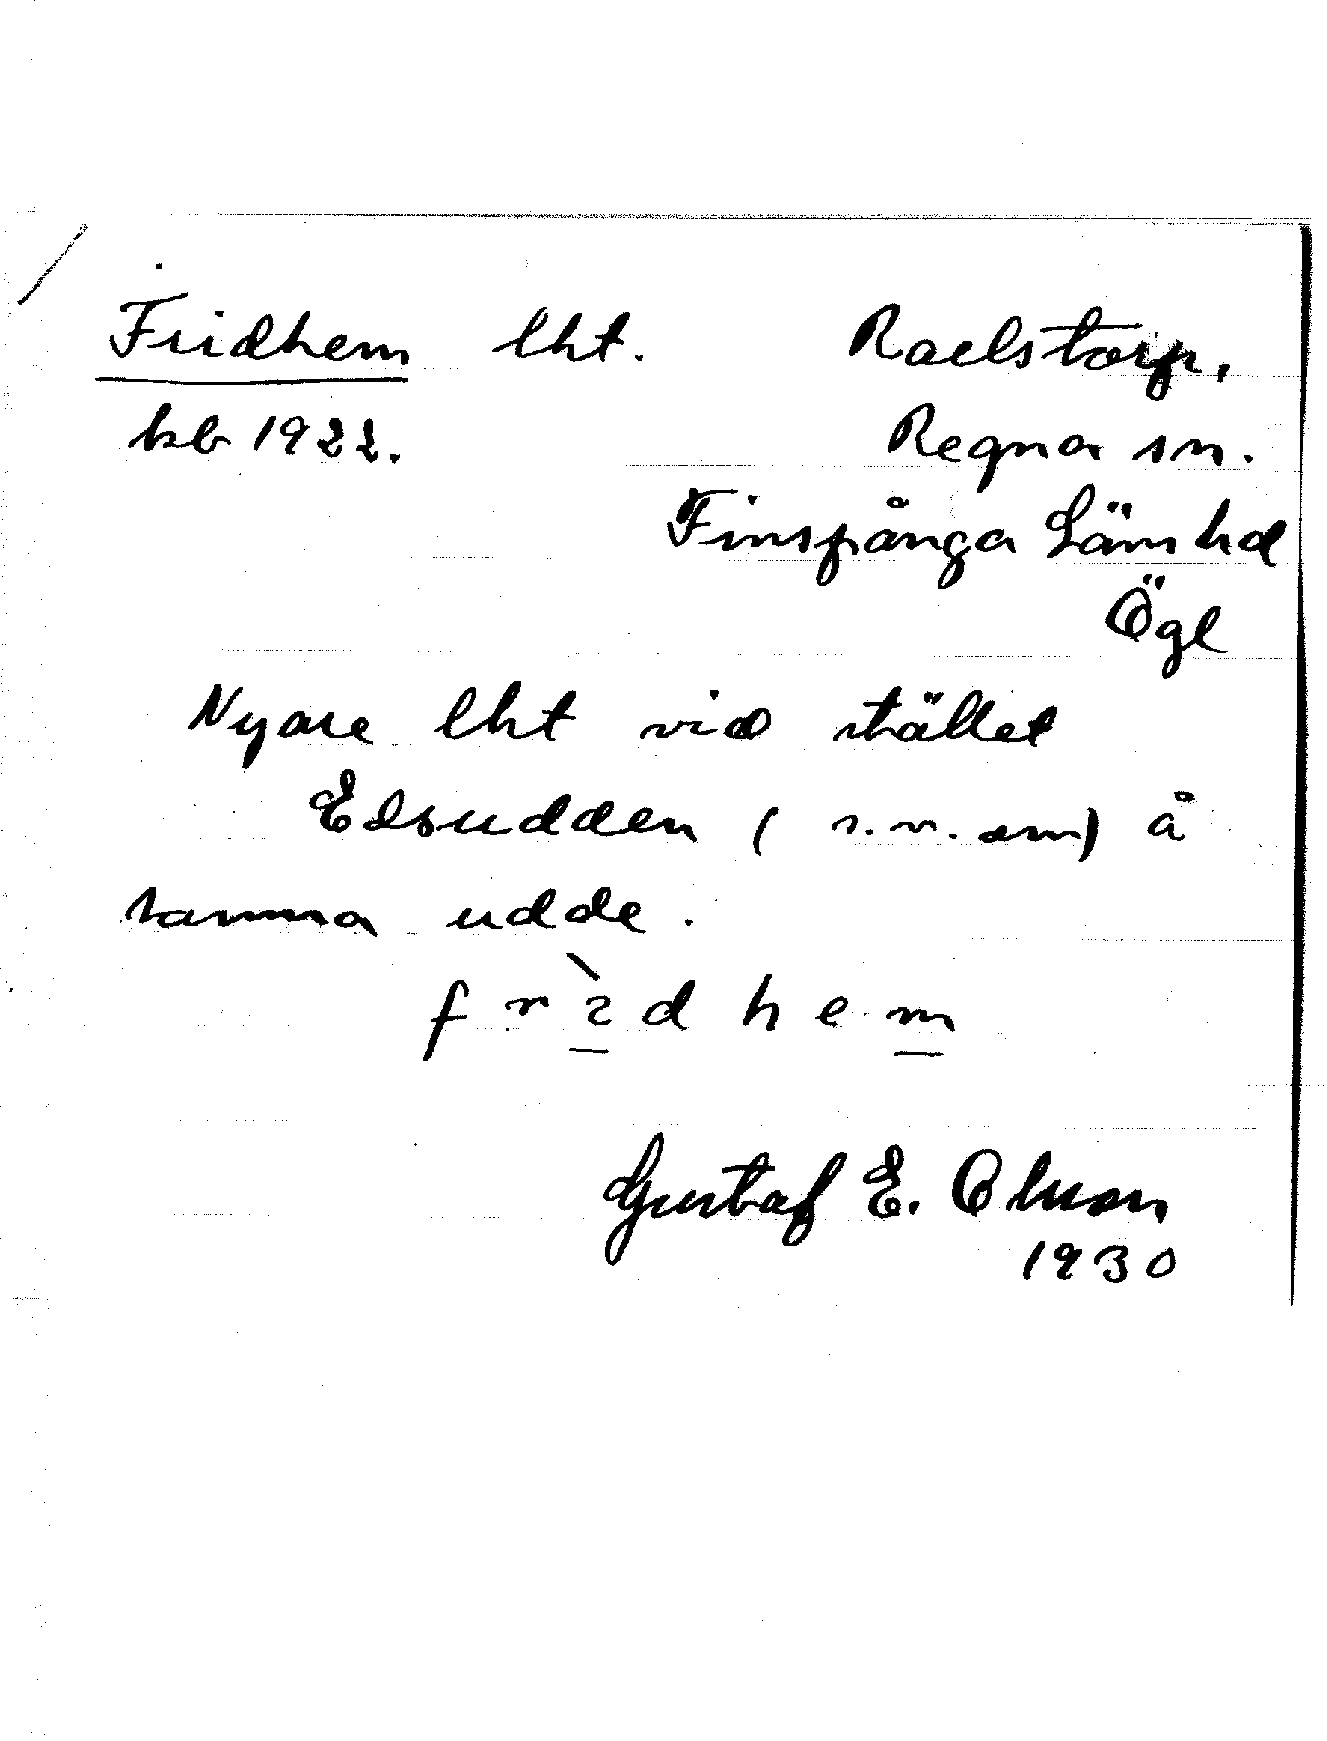 Fridhem lht. Raelstorp,
kb 1922. Regna sn.
Finspånga Läns hd
Ögl
Nyare lht vid stället
Edsudden (s.n. om) å
samma udde.
f r ì d h e m
Gustaf E. Olsson
1930